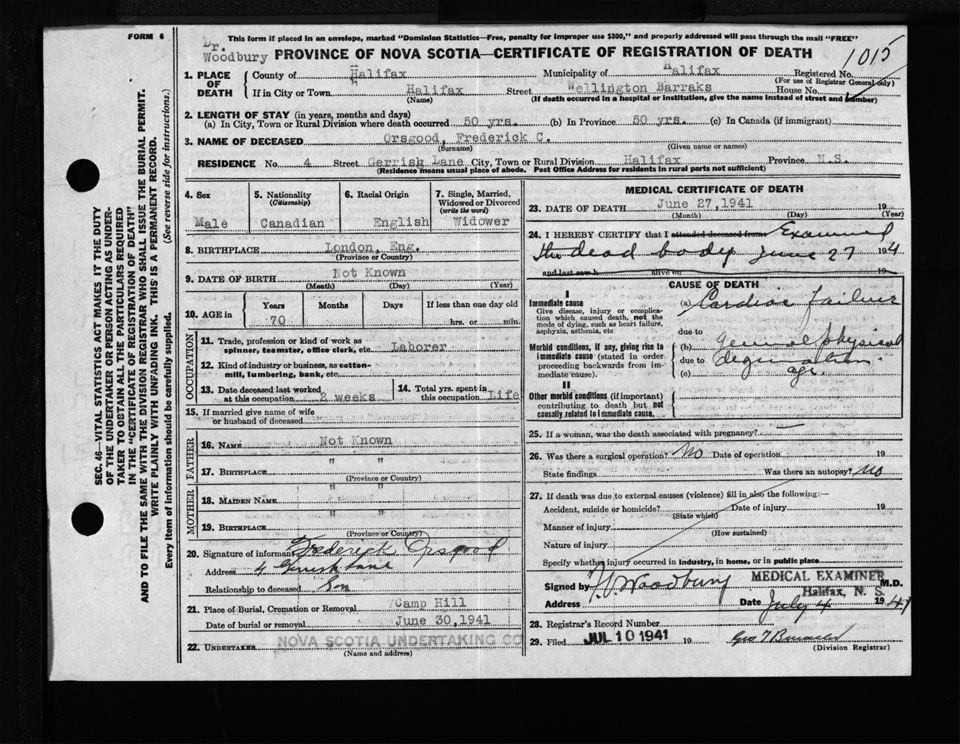 FORM 6
This form if placed in an envelope, marked "Dominion Statistics—Free, penalty for improper use $300," and properly addressed will pass through the mail "FREE"
Dr.
Woodbury
PROVINCE OF NOVA SCOTIA—CERTIFICATE OF REGISTRATION OF DEATH
1015
1. PLACE OF DEATH
County of Halifax Municipality of Halifax Registered No.
(For use of Registrar General only)
If in City or Town Halifax Street Wellington Barraks House No.
(Name) (If death occurred in a hospital or institution, give the name instead of street and number)
2. LENGTH OF STAY (in years, months and days)
(a) In City, Town or Rural Division where death occurred 50 yrs. (b) In Province 50 yrs. (c) In Canada (if immigrant)
3. NAME OF DECEASED Orsgood, Frederick C.
(Surname) (Given name or names)
RESIDENCE No. 4 Street Gerrish Lane City, Town or Rural Division Halifax Province N.S.
(Residence means usual place of abode. Post Office Address for residents in rural parts not sufficient)
4. Sex
Male
5. Nationality
(Citizenship)
Canadian
6. Racial Origin
English
7. Single, Married, Widowed or Divorced
(write the word)
Widower
8. BIRTHPLACE London, Eng.
(Province or Country)
9. DATE OF BIRTH Not Known
(Month) (Day) (Year)
10. AGE in
Years Months Days If less than one day old
70 hrs. or min.
OCCUPATION
11. Trade, profession or kind of work as
spinner, teamster, office clerk, etc. Laborer
12. Kind of industry or business, as cotton-
mill, lumbering, bank, etc.
13. Date deceased last worked
at this occupation 2 weeks
14. Total yrs. spent in
this occupation Life
15. If married give name of wife
or husband of deceased
FATHER
16. NAME Not Known
17. BIRTHPLACE " "
(Province or Country)
MOTHER
18. MAIDEN NAME " "
19. BIRTHPLACE " "
(Province or Country)
20. Signature of informant Frederick Orsgood
Address 4 Gerrish Lane
Relationship to deceased Son
21. Place of Burial, Cremation or Removal Camp Hill
Date of burial or removal June 30,1941
22. UNDERTAKER NOVA SCOTIA UNDERTAKING CO
(Name and address)
MEDICAL CERTIFICATE OF DEATH
23. DATE OF DEATH June 27,1941 19
(Month) (Day) (Year)
24. I HEREBY CERTIFY that I attended deceased from Examined
the dead body June 27 194
and last saw h alive on 194
CAUSE OF DEATH
I
Immediate cause
Give disease, injury or complication which caused death, not the mode of dying, such as heart failure, asphyxia, asthenia, etc
(a) Cardiac failure
due to
Morbid conditions, if any, giving rise to immediate cause (stated in order proceeding backwards from immediate cause).
(b) general physical
due to
(c) age.
II
Other morbid conditions (if important) contributing to death but not causally related to immediate cause.
25. If a woman, was the death associated with pregnancy? —
26. Was there a surgical operation? No Date of operation 19
State findings Was there an autopsy? No
27. If death was due to external causes (violence) fill in also the following:—
Accident, suicide or homicide? Date of injury 194
(State which)
Manner of injury
(How sustained)
Nature of injury
Specify whether injury occurred in Industry, in home, or in public place
Signed by Woodbury MEDICAL EXAMINER M.D.
Halifax, N. S.
Address Date July 4 1941
28. Registrar's Record Number
29. Filed JUL 10 1941 19
(Division Registrar)
SEC. 46—VITAL STATISTICS ACT MAKES IT THE DUTY
OF THE UNDERTAKER OR PERSON ACTING AS UNDER-
TAKER TO OBTAIN ALL THE PARTICULARS REQUIRED
IN THE "CERTIFICATE OF REGISTRATION OF DEATH"
AND TO FILE THE SAME WITH THE DIVISION REGISTRAR WHO SHALL ISSUE THE BURIAL PERMIT.
WRITE PLAINLY WITH UNFADING INK. THIS IS A PERMANENT RECORD.
Every item of information should be carefully supplied. (See reverse side for instructions.)